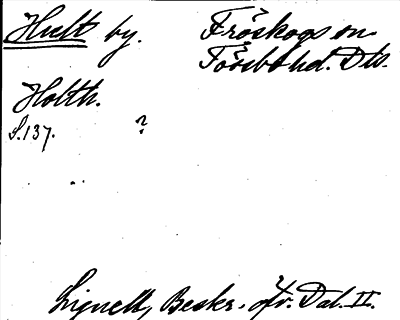 Hult by. Fröskogs sn
Tössbo hd. Dls.
Holth.
S. 137. ?
Lignell, Beskr. öfv. Dal. II.